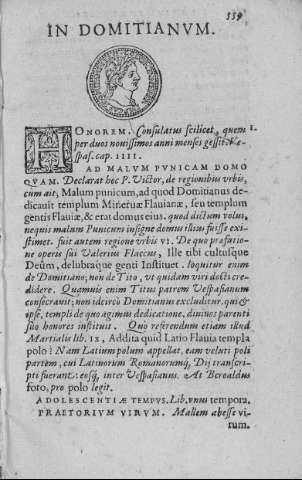 559
IN DOMITIANVM.
HONOREM. Consulatus scilicet, quem 1.
per duos nouissimos anni menses gessit. Ve-
spas. cap. 1111.
AD MALVM PVNICAM DOMO
QVAM. Declarat hoc P. Victor, de regionibus vrbis,
cum ait, Malum punicum, ad quod Domitianus de-
dicauit templum Mineruæ Flauianæ, seu templum
gentis Flauiæ, & erat domus eius. quod dictum volui,
nequis malum Punicum insigne domus illius fuisse exi-
stimet. fuit autem regione vrbis VI. De quo præfatio-
ne operis sui Valerius Flaccus, Ille tibi cultusque
Deûm, delubraque genti Instituet. loquitur enim
de Domitiano, non de Tito, vt quidam viri docti cre-
didere. Quamuis enim Titus patrem Vespasianum
consecrauit: non idcircò Domitianus excluditur. qui &
ipse, templi de quo agimus dedicatione, diuinos parenti
suo honores instituit. Quo referendum etiam illud
Martialis lib. IX, Addita quid Latio Flauia templa
polo? Nam Latium polum appellat, eam veluti poli
partem, cui Latinorum Romanorumq́, Dij transcri-
pti fuerant: eosq́, inter Vespasianus. At Beroaldus
foro, pro polo legit.
ADOLESCENTIÆ TEMPVS. Lib. vnus tempora.
PRAETORIVM VIRVM. Mallem abesse vi-
rum.